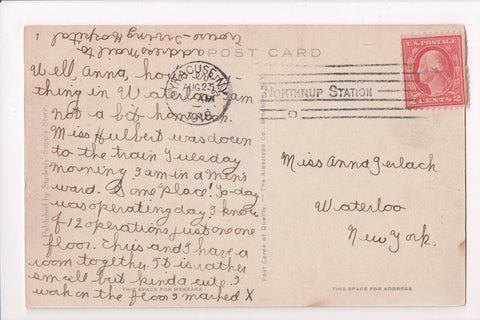 address mail to
Crouse-Irving Hospital
POST CARD
SYRACUSE, N.Y.
AUG 23
AM
1918
NORTHRUP STATION
U.S. POSTAGE
2 CENTS 2
Well, Anna, how is
thing in Waterloo. I am
not a bit homesick.
Miss Hulbert was down
to the train Tuesday
morning. I am in a men's
ward. S one place! To-day
was operating day. I know
of 12 operations just on one
floor. Ehris and I have a
room together. It is rather
small but kinda cute. I
work on the floor I marked X
Miss Anna Gerlach
Waterloo
New York.
Published by Students Supply Store.
Post Cards of Quality. — The Albertype Co., Brooklyn, N.Y.
THIS SPACE FOR MESSAGE
THIS SPACE FOR ADDRESS